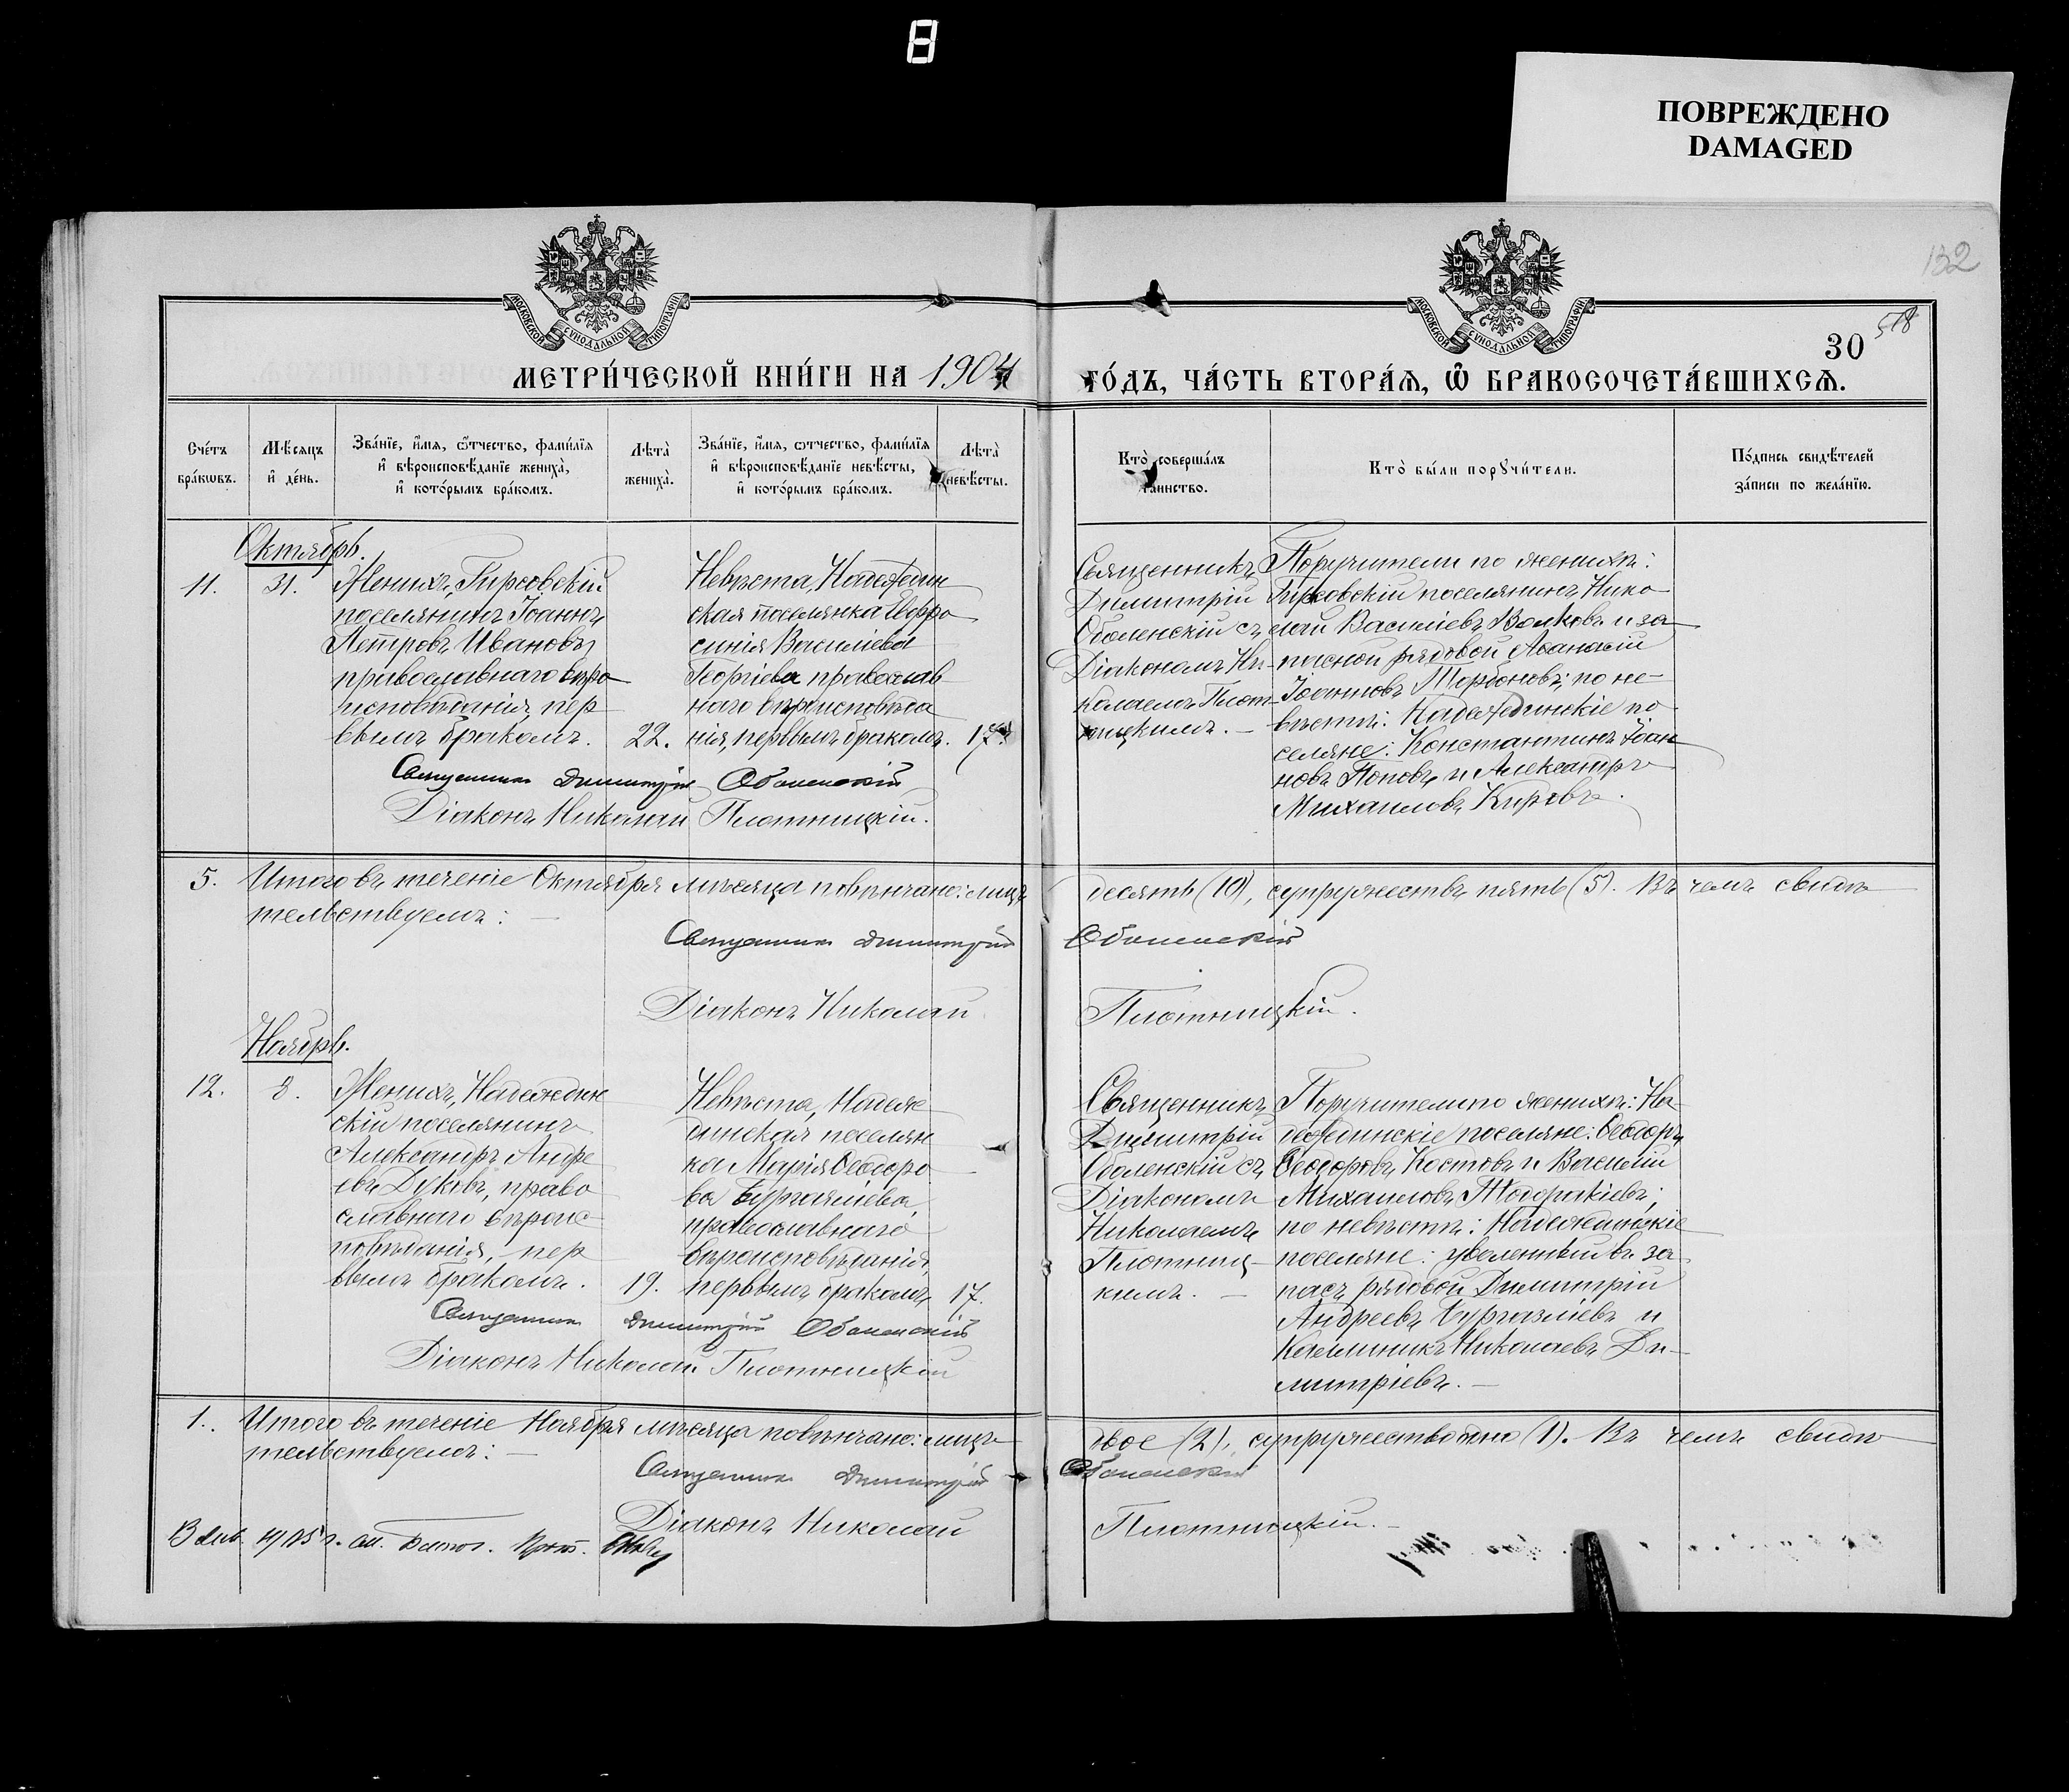 8
ПОВРЕЖДЕНО
DAMAGED
132
МОСКОВСКОЙ СѴНОДАЛЬНОЙ ТИПОГРАФІИ
МОСКОВСКОЙ СѴНОДАЛЬНОЙ ТИПОГРАФІИ
30
518
МЕТРИ́ЧЕСКОЙ КНИ́ГИ НА 1904
ГО́ДЪ, ЧА́СТЬ ВТОРА́Ѧ, Ѽ БРАКОСОЧЕТА́ВШИХСѦ.
Сче́тъ
бра́кѡвъ.
Мѣ́сяцъ
и҆ де́нь.
Зва́нїе, и҆́мя, ѻ҆́тчество, фами́лїя
и҆ вѣроисповѣ́данїе жениха̀,
и҆ кото́рымъ бра́комъ.
Лѣта̀
жениха̀.
Зва́нїе, и҆́мя, ѻ҆́тчество, фами́лїя
и҆ вѣроисповѣ́данїе невѣ́сты,
и҆ кото́рымъ бра́комъ.
Лѣта̀
невѣ́сты.
Кто̀ соверша́лъ
таинство.
Кто̀ бы́ли порꙋчи́тели.
По́дпись свидѣ́телей
за́писи по жела́нїю.
Октябрь.
11.
31.
Женихъ, Гирсовскій
поселянинъ Іоаннъ
Петровъ Ивановъ,
православнаго вѣро
исповѣданія, пер
вымъ бракомъ.
22.
Невѣста, Надеждин
ская поселянка Евфро
синія Василіева
Георгіева православ
наго вѣроисповѣда
нія, первымъ бракомъ.
17.
Священникъ
Димитрій
Оболенскій съ
Діакономъ Ни-
колаемъ Плот-
ницкимъ. —
Поручители по женихѣ:
Гирсовскій поселянинъ Нико-
лай Василіевъ Волковъ и за-
пасной рядовой Аѳанасій
Іоанновъ Торбоновъ; по не-
вѣстѣ: Надеждинскіе по-
селяне: Константинъ Іоан-
новъ Поповъ и Александръ
Михаиловъ Кировъ.
Священникъ Димитрій Оболенскій
Діаконъ Николай Плотницкій.
5. Итого въ теченіе Октября мѣсяца повѣнчано: лицъ десять (10), супружествъ пять (5). Въ чемъ свидѣ-
тельствуемъ: —
Священникъ Димитрій Оболенскій
Діаконъ Николай Плотницкій.
Ноябрь.
12.
8.
Женихъ, Надеждин
скій поселянинъ
Александръ Андре
евъ Дуковъ, право
славнаго вѣроис-
повѣданія, пер
вымъ бракомъ.
19.
Невѣста, Надеж
динская поселян
ка Марія Ѳеодоро
ва Бургазліева,
православнаго
вѣроисповѣданія,
первымъ бракомъ,
17.
Священникъ
Димитрій
Оболенскій съ
Діакономъ
Николаемъ
Плотниц-
кимъ. —
Поручители по женихѣ: На-
деждинскіе поселяне: Ѳеодоръ
Ѳеодоровъ Костовъ и Василій
Михаиловъ Тодоракіевъ;
по невѣстѣ: Надеждинскіе
поселяне: уволенный въ за-
пасъ рядовой Димитрій
Андреевъ Бургазліевъ и
Каллиникъ Николаевъ Ди-
митріевъ. —
Священникъ Димитрій Оболенскій
Діаконъ Николай Плотницкій
1. Итого въ теченіе Ноября мѣсяца повѣнчано: лицъ двое (2), супружество одно (1). Въ чемъ свидѣ-
тельствуемъ: —
Священникъ Димитрій Оболенскій
Діаконъ Николай Плотницкій. —
1905 г.